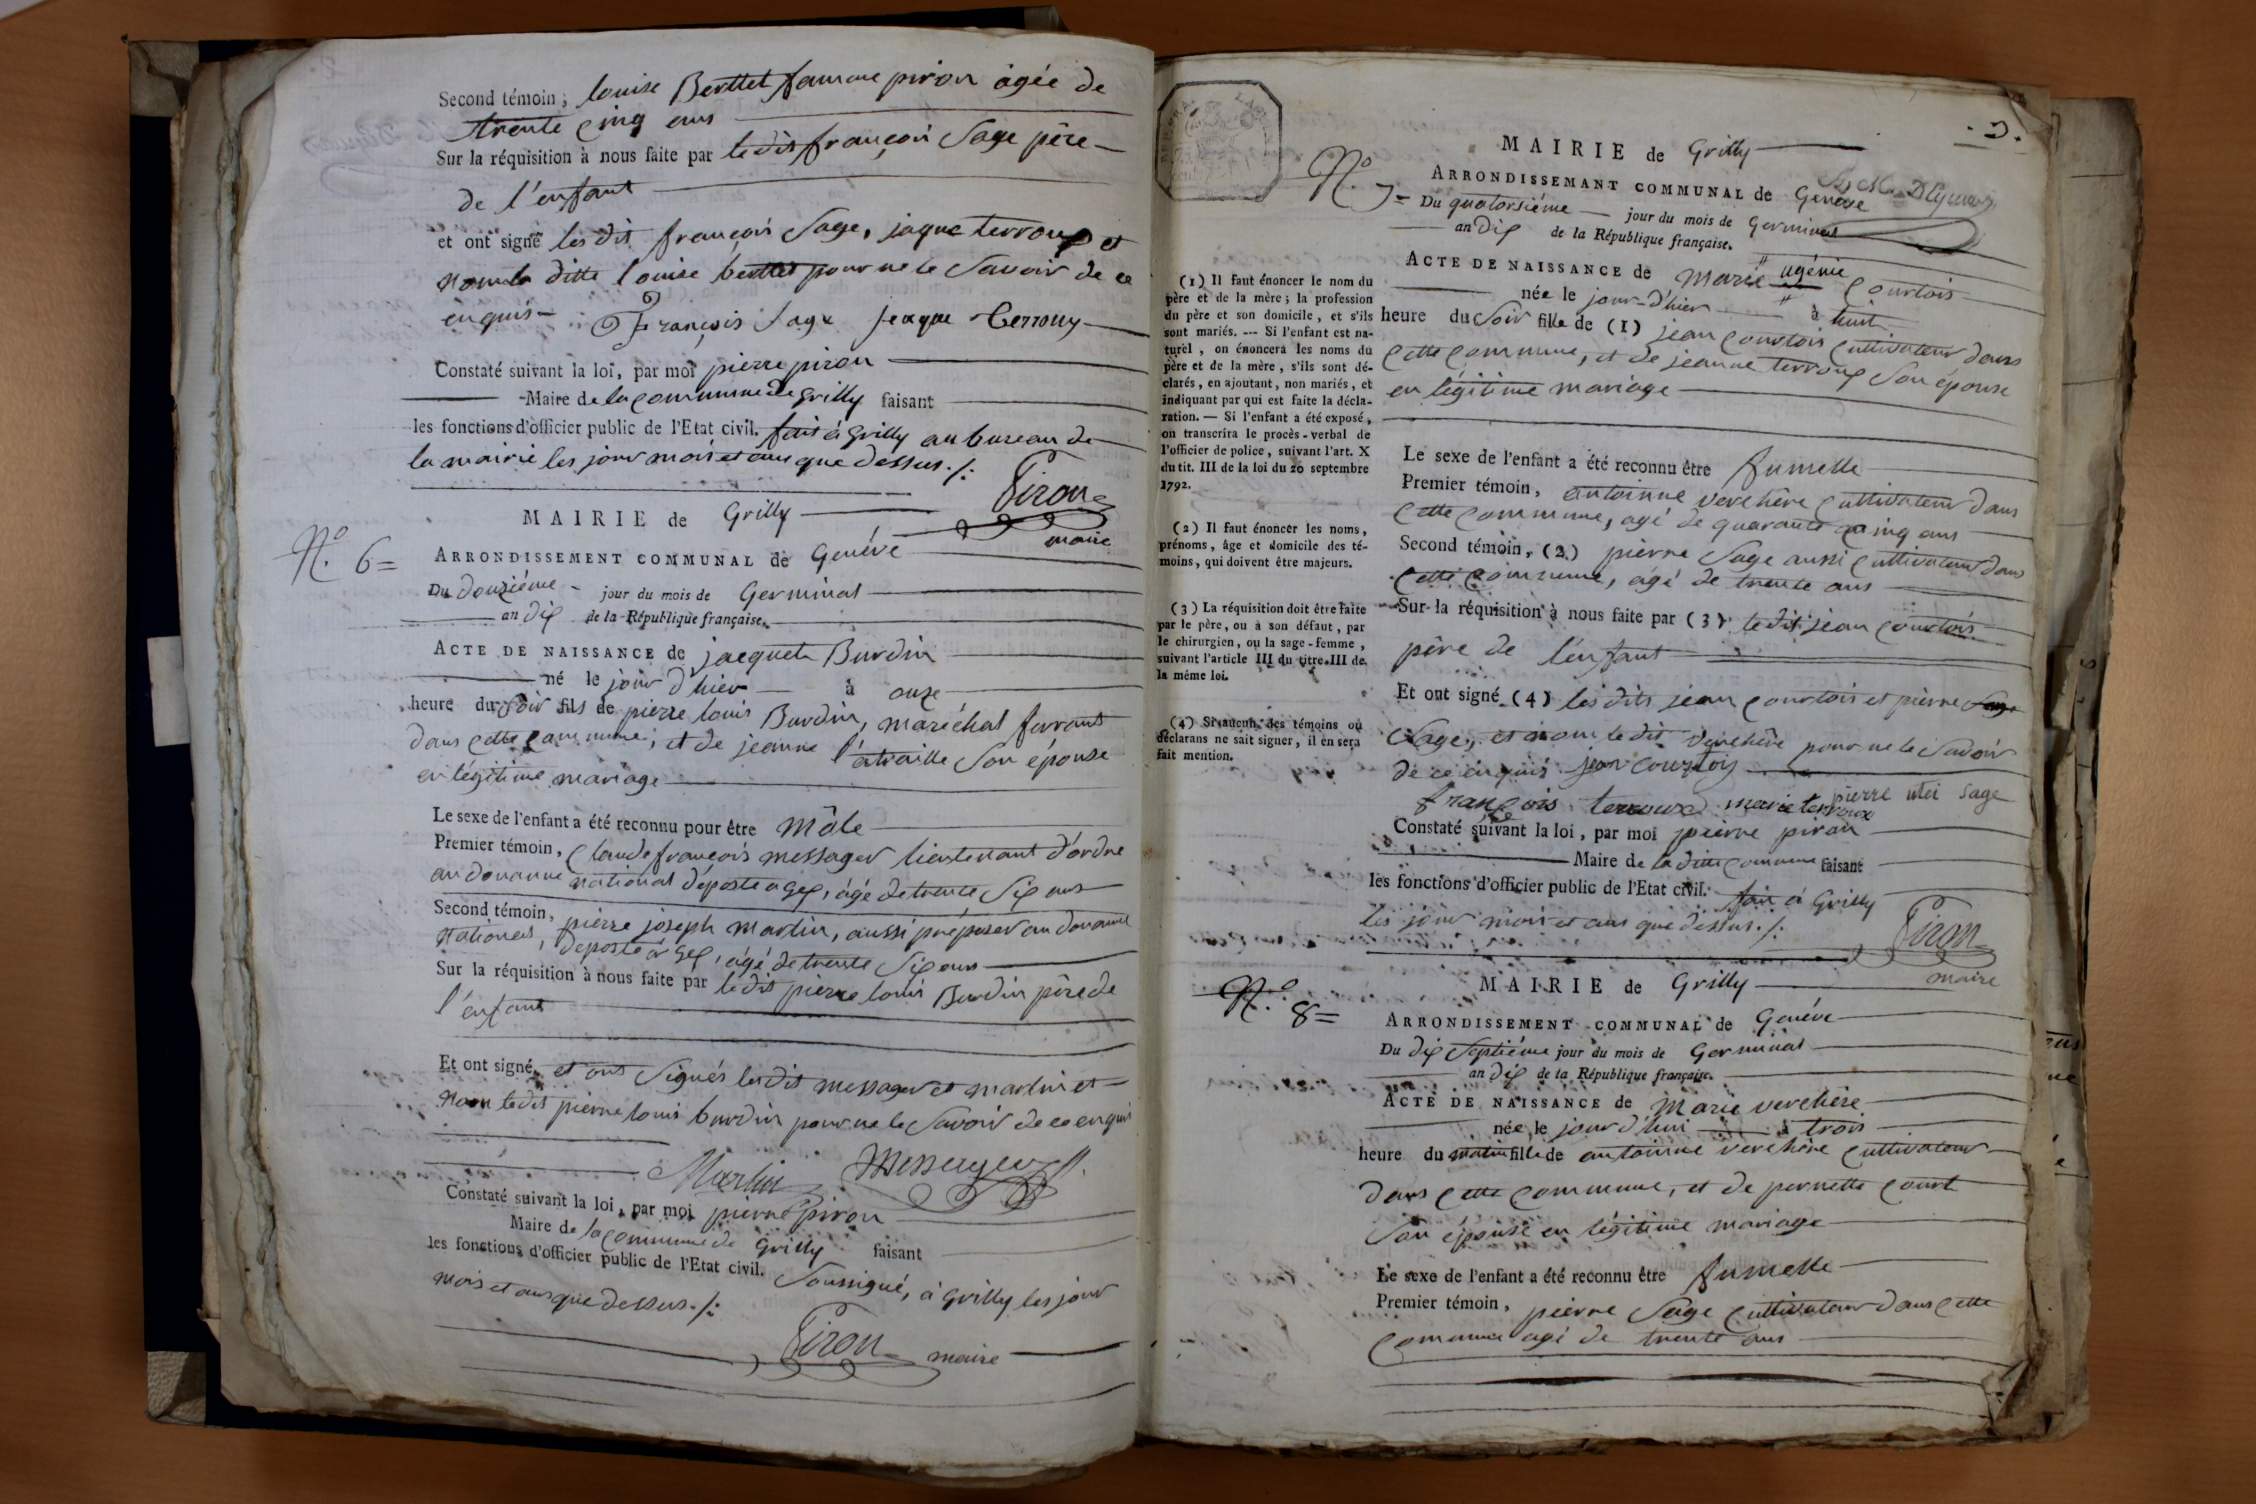 Second témoin, louise Berttet famme piron agée de
trente cinq ans
Sur la réquisition à nous faite par le dit françois Sage père
de l'enfant
et ont signé les dit françois Sage, jaque terroux et
nom la ditte louise berttet pour ne le Savoir de ce
enquis François Sage jeaque Terroux
Constaté suivant la loi, par moi pierre piron
Maire de la commune de Grilly faisant
les fonctions d'officier public de l'Etat civil. fait à Grilly au bureau de
la mairie les jour mois et ans que dessus ./.
Piron
maire
MAIRIE de Grilly
N.º 6=
ARRONDISSEMENT COMMUNAL de Genéve
Du douziéme jour du mois de Germinal
an dix de la République française.
ACTE DE NAISSANCE de jacques Burdin
né le jour d'hier à onze
heure du Soir fils de pierre louis Burdin, maréchal ferrant
dans cette commune, et de jeanne l'atraille Son épouse
en légitime mariage
Le sexe de l'enfant a été reconnu pour être mâle
Premier témoin, Claude françois messager lieutenant d'ordre
au douanne national déposte a Gex, âgé de trente Six ans
Second témoin, pierre joseph martin, aussi préposer au douanne
National, deposte à Gex, âgé de trente Six ans
Sur la réquisition à nous faite par le dit pierre louis Burdin père de
l'enfant
Et ont signé, et ont Signés les dit messager et martin et
nom le dit pierre louis burdin pour ne le Savoir de ce enquis
Martin Messager
Constaté suivant la loi, par moi pierre piron
Maire de la commune de Grilly faisant
les fonctions d'officier public de l'Etat civil. Soussigné, à Grilly les jour
mois et ans que dessus ./.
Piron maire
MAIRIE de Grilly
N.º 7=
ARRONDISSEMANT COMMUNAL de Genève
Du quatorsiéme jour du mois de Germinal
an Dix de la République française.
ACTE DE NAISSANCE de Marie ugénie Courtois
née le jour-d'hier à huit
heure du Soir fille de (1) jean Courtois Cultivateur dans
Cette Commune, et de jeanne terroux Son épouse
en légitime mariage
(1) Il faut énoncer le nom du
père et de la mère; la profession
du père et son domicile, et s'ils
sont mariés. --- Si l'enfant est na-
turel, on énoncera les noms du
père et de la mère, s'ils sont dé-
clarés, en ajoutant, non mariés, et
indiquant par qui est faite la décla-
ration. — Si l'enfant a été exposé,
on transcrira le procès-verbal de
l'officier de police, suivant l'art. X
du tit. III de la loi du 20 septembre
1792.
(2) Il faut énoncer les noms,
prénoms, âge et domicile des té-
moins, qui doivent être majeurs.
(3) La réquisition doit être faite
par le père, ou à son défaut, par
le chirurgien, ou la sage-femme,
suivant l'article III du titre III de
la même loi.
(4) Si aucun des témoins ou
déclarans ne sait signer, il en sera
fait mention.
Le sexe de l'enfant a été reconnu être fumelle
Premier témoin, antoinne verchère Cultivateur dans
Cette Commune, agé de quarante cinq ans
Second témoin, (2) pierre Sage aussi Cultivateur dans
Cette Commune, âgé de trente ans
Sur la réquisition à nous faite par (3) le dit jean Courtois
père de l'enfant
Et ont signé (4) les dits jean Courtois et pierre Sage
Sage, et nom le dit Verchère pour ne le Savoir
de ce enquis jean courtois
pierre Sage
françois terroux marie terroux
Constaté suivant la loi, par moi pierre piron
Maire de la ditte Commune faisant
les fonctions d'officier public de l'Etat civil. fait à Grilly
les jour mois et ans que dessus ./.
Piron
maire
MAIRIE de Grilly
N.º 8=
ARRONDISSEMENT COMMUNAL de Genéve
Du dix Septiéme jour du mois de Germinal
an dix de la République française.
ACTE DE NAISSANCE de Marie verchère
née le jour d'hui à trois
heure du matin fille de antoinne verchère Cultivateur
dans Cette Commune, et de pernette Court
Son épouse en légitime mariage
Le sexe de l'enfant a été reconnu être fumelle
Premier témoin, pierre Sage Cultivateur dans Cette
Commune agé de trente ans